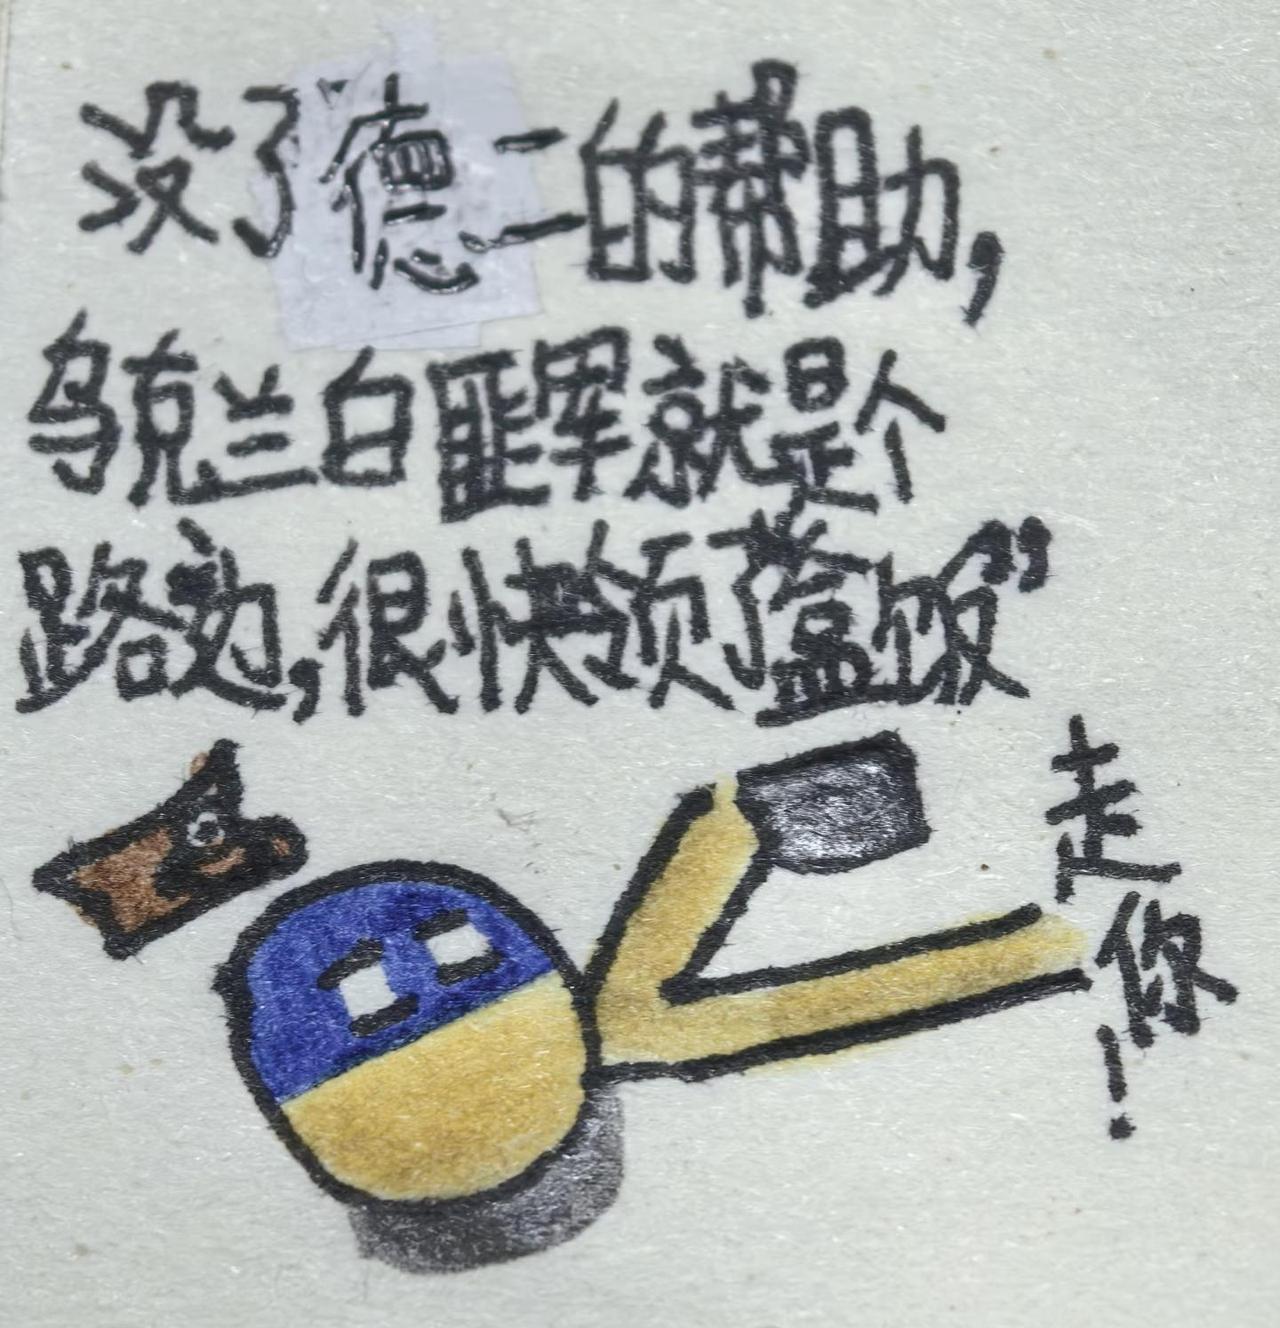 没了德二的帮助，
乌克兰白匪军就是个
路边，很快领了盒饭”
走你！